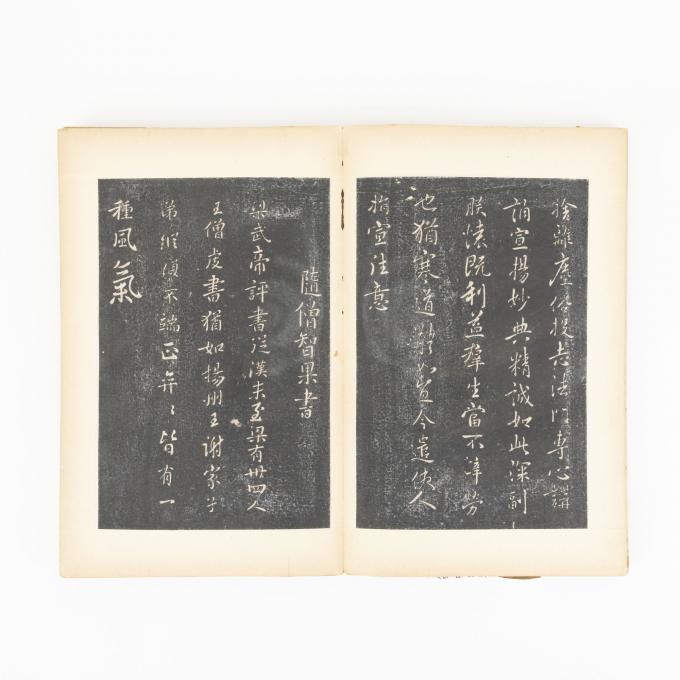 捨離塵俗投志法門專心講
誦宣揚妙典精誠如此深副
朕懷既利益羣生當不憚勞
也猶寒道體如宜今遣使人
指宣往意
隨僧智果書
梁武帝評書從漢末至梁有卅四人
王僧虔書猶如揚州王謝家子
弟縱復不端正奕〻皆有一
種風氣